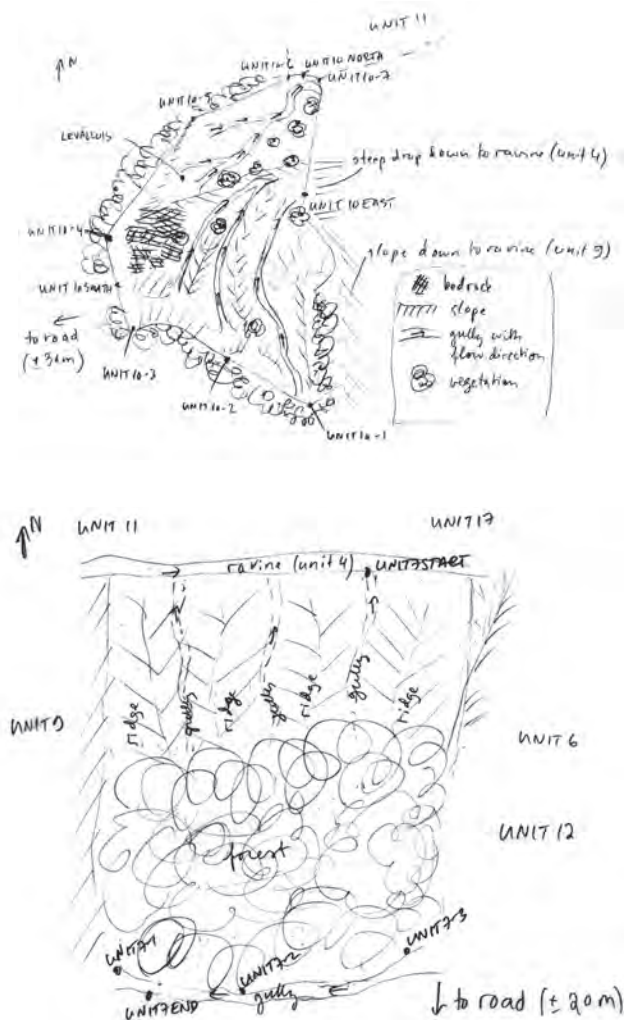 UNIT 11
N
UNIT 10-6 UNIT 10 NORTH
UNIT 10-7
UNIT 10-5
LEVALLOIS
steep drop down to ravine (unit 4)
UNIT 10 EAST
UNIT 10-4
slope down to ravine (unit 9)
UNIT 10 SOUTH
bedrock
slope
gully with
flow direction
vegetation
to road
(± 30m)
UNIT 10-3
UNIT 10-2
UNIT 10-1
N
UNIT 11
UNIT 17
ravine (unit 4)
UNIT7START
ridge
gully
ridge
gully
ridge
gully
ridge
UNIT 9
UNIT 6
UNIT 12
forest
UNIT7-1
UNIT7-2
UNIT7-3
UNIT7END
gully
to road (± 20m)